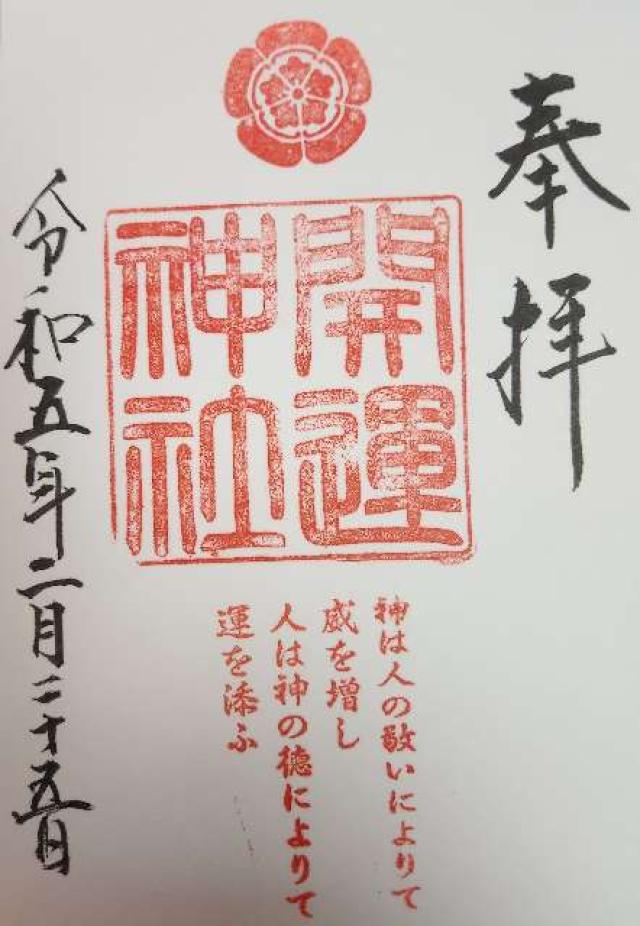 奉拝
開運
神社
神は人の敬いによりて
威を増し
人は神の徳によりて
運を添ふ
令和五年二月二十五日